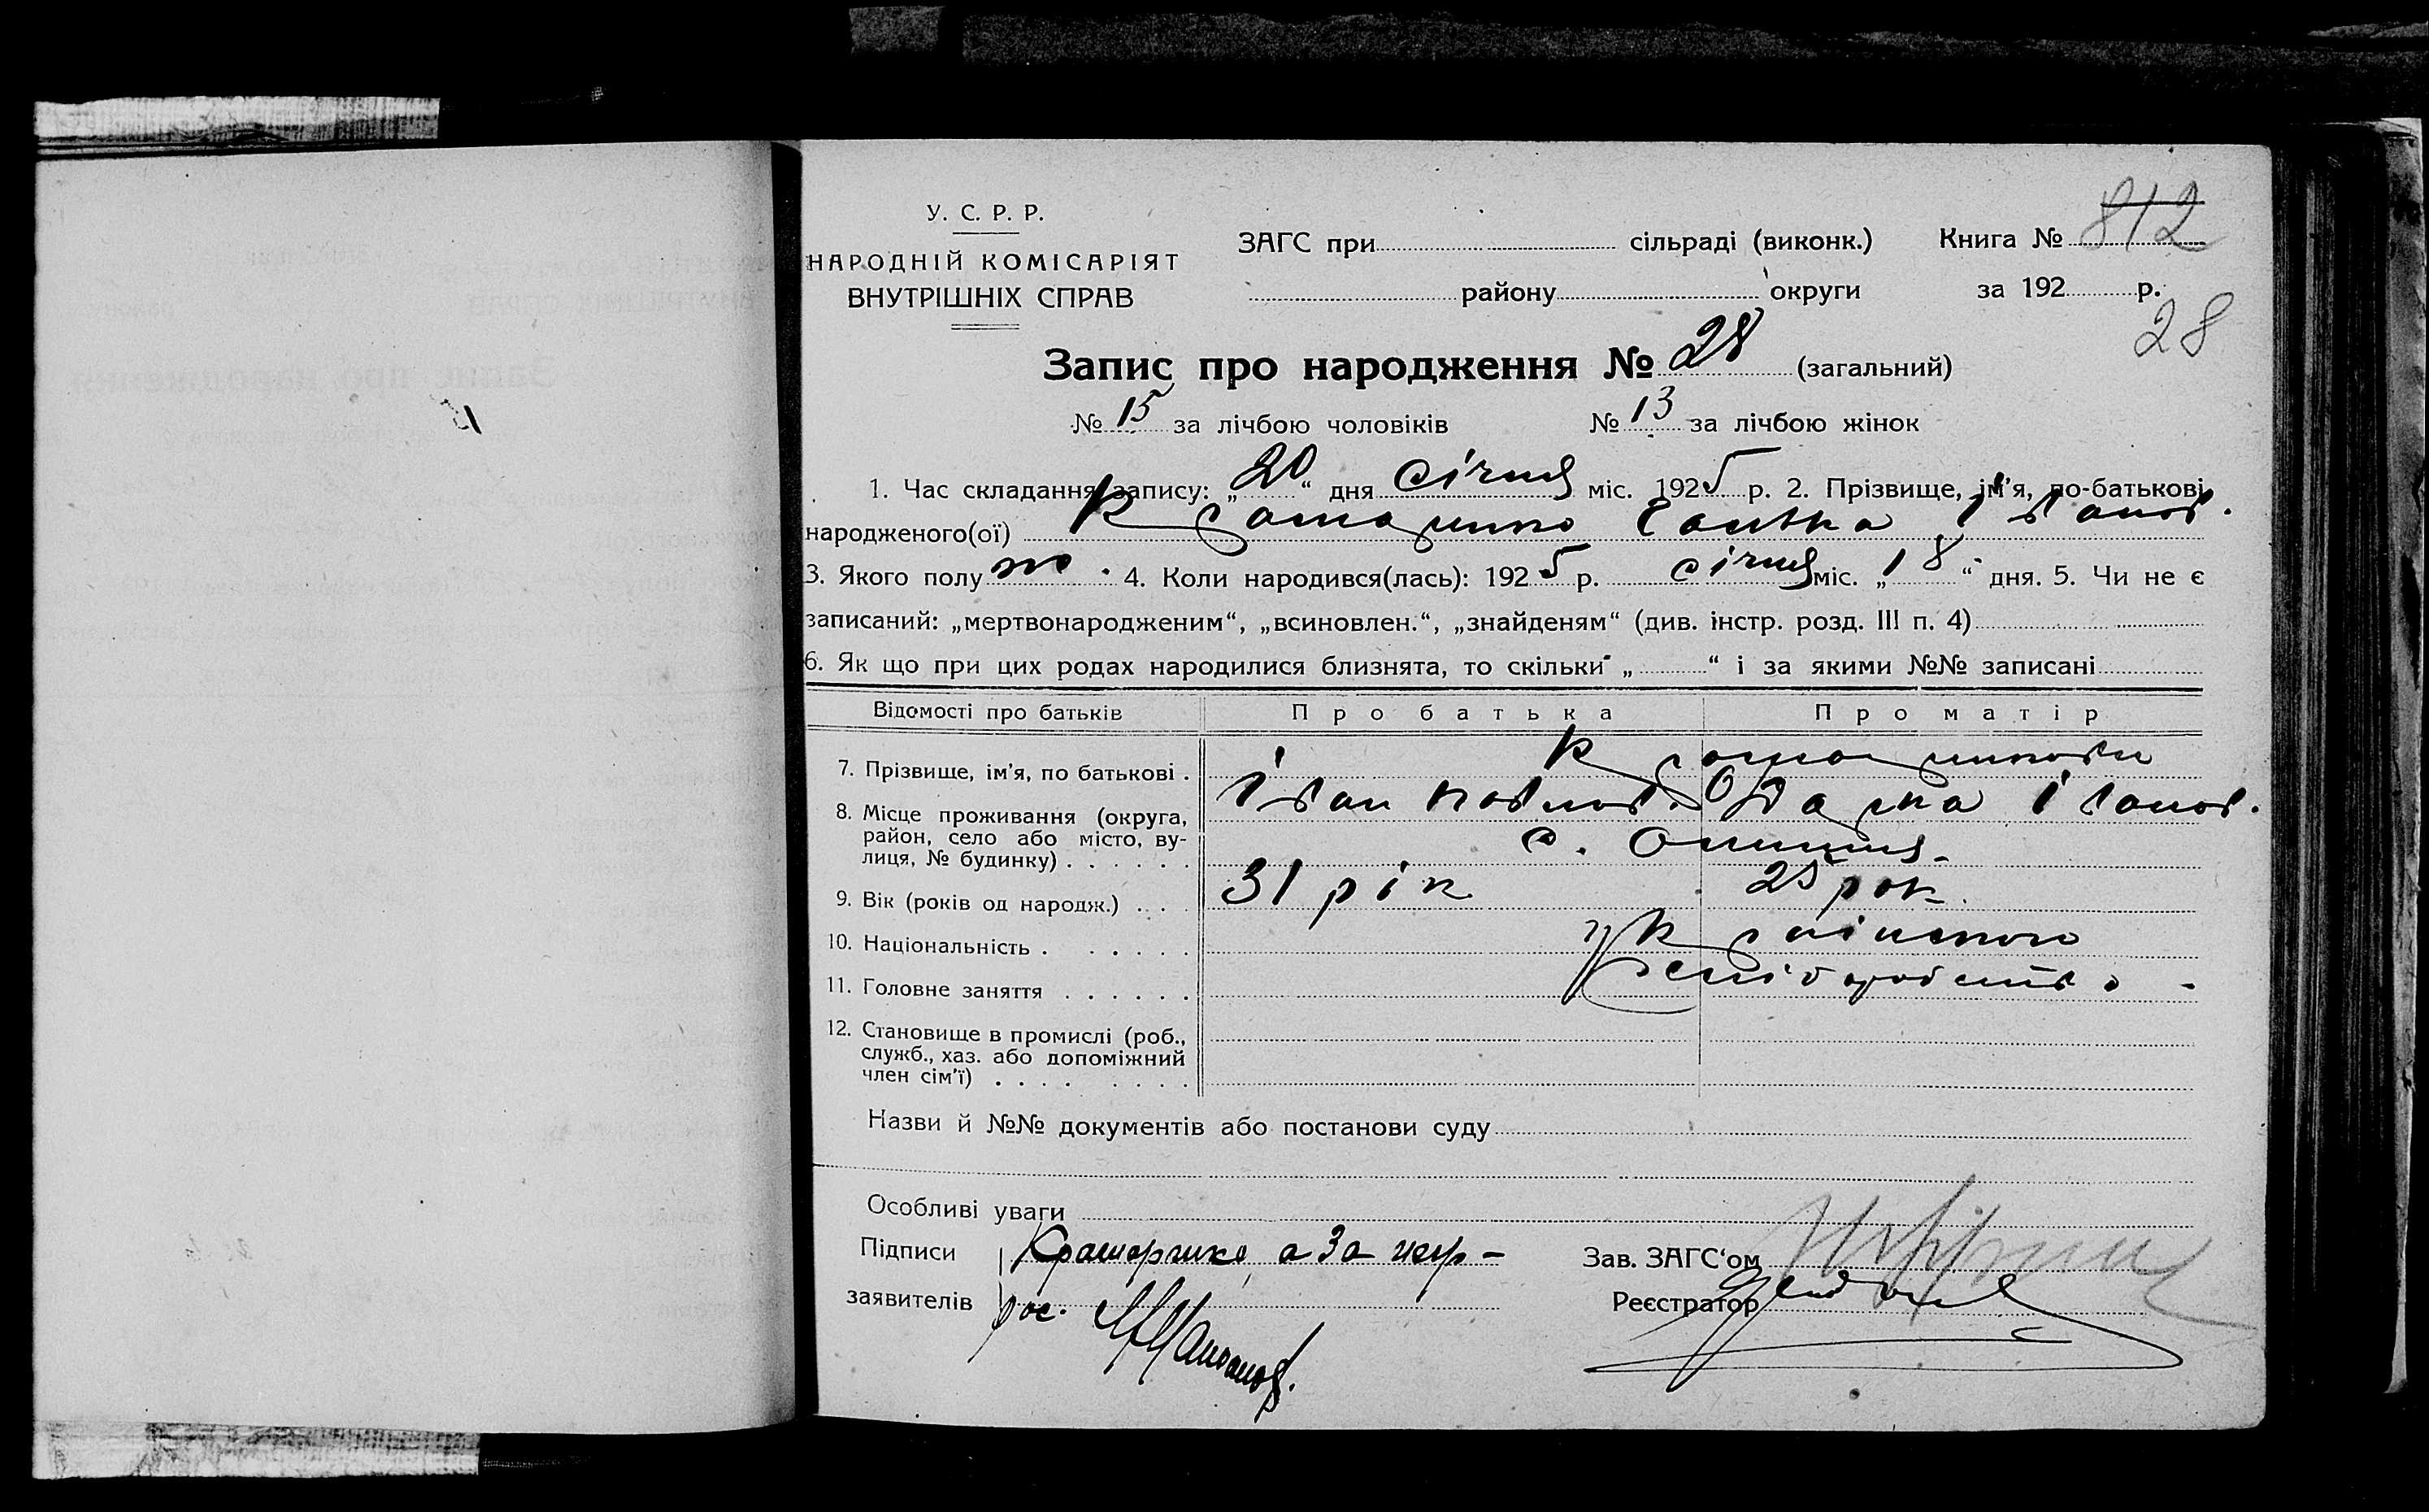 У. С. Р. Р.
НАРОДНІЙ КОМІСАРІЯТ
ВНУТРІШНІХ СПРАВ
ЗАГС при сільраді (виконк.) Книга № 812
району округи за 192 р.
28
Запис про народження № 28 (загальний)
№ 15 за лічбою чоловіків № 13 за лічбою жінок
1. Час складання запису: „20“ дня січня міс. 1925 р. 2. Прізвище, ім'я, по-батькові
народженого(ої) Іванов.
3. Якого полу ж. 4. Коли народився(лась): 1925 р. січня міс. „18“ дня. 5. Чи не є
записаний: „мертвонародженим“, „всиновлен.“, „знайденям“ (див. інстр. розд. III п. 4)
6. Як що при цих родах народилися близнята, то скільки „ “ і за якими №№ записані
Відомості про батьків Про батька Про матір
7. Прізвище, ім'я, по батькові .
Іван Павлов. Іванов.
8. Місце проживання (округа,
район, село або місто, ву-
лиця, № будинку) . . . . . . с. Опішня.
9. Вік (років од народж.) . . . 31 рік 25 рок.
10. Національність . . . . . . української
11. Головне заняття . . . . . . хліборобство -
12. Становище в промислі (роб.,
служб., хаз. або допоміжний
член сім'ї) . . . . . . . .
Назви й №№ документів або постанови суду
Особливі уваги
Підписи а За негр-
заявителів рос.
Зав. ЗАГС'ом
Реєстратор